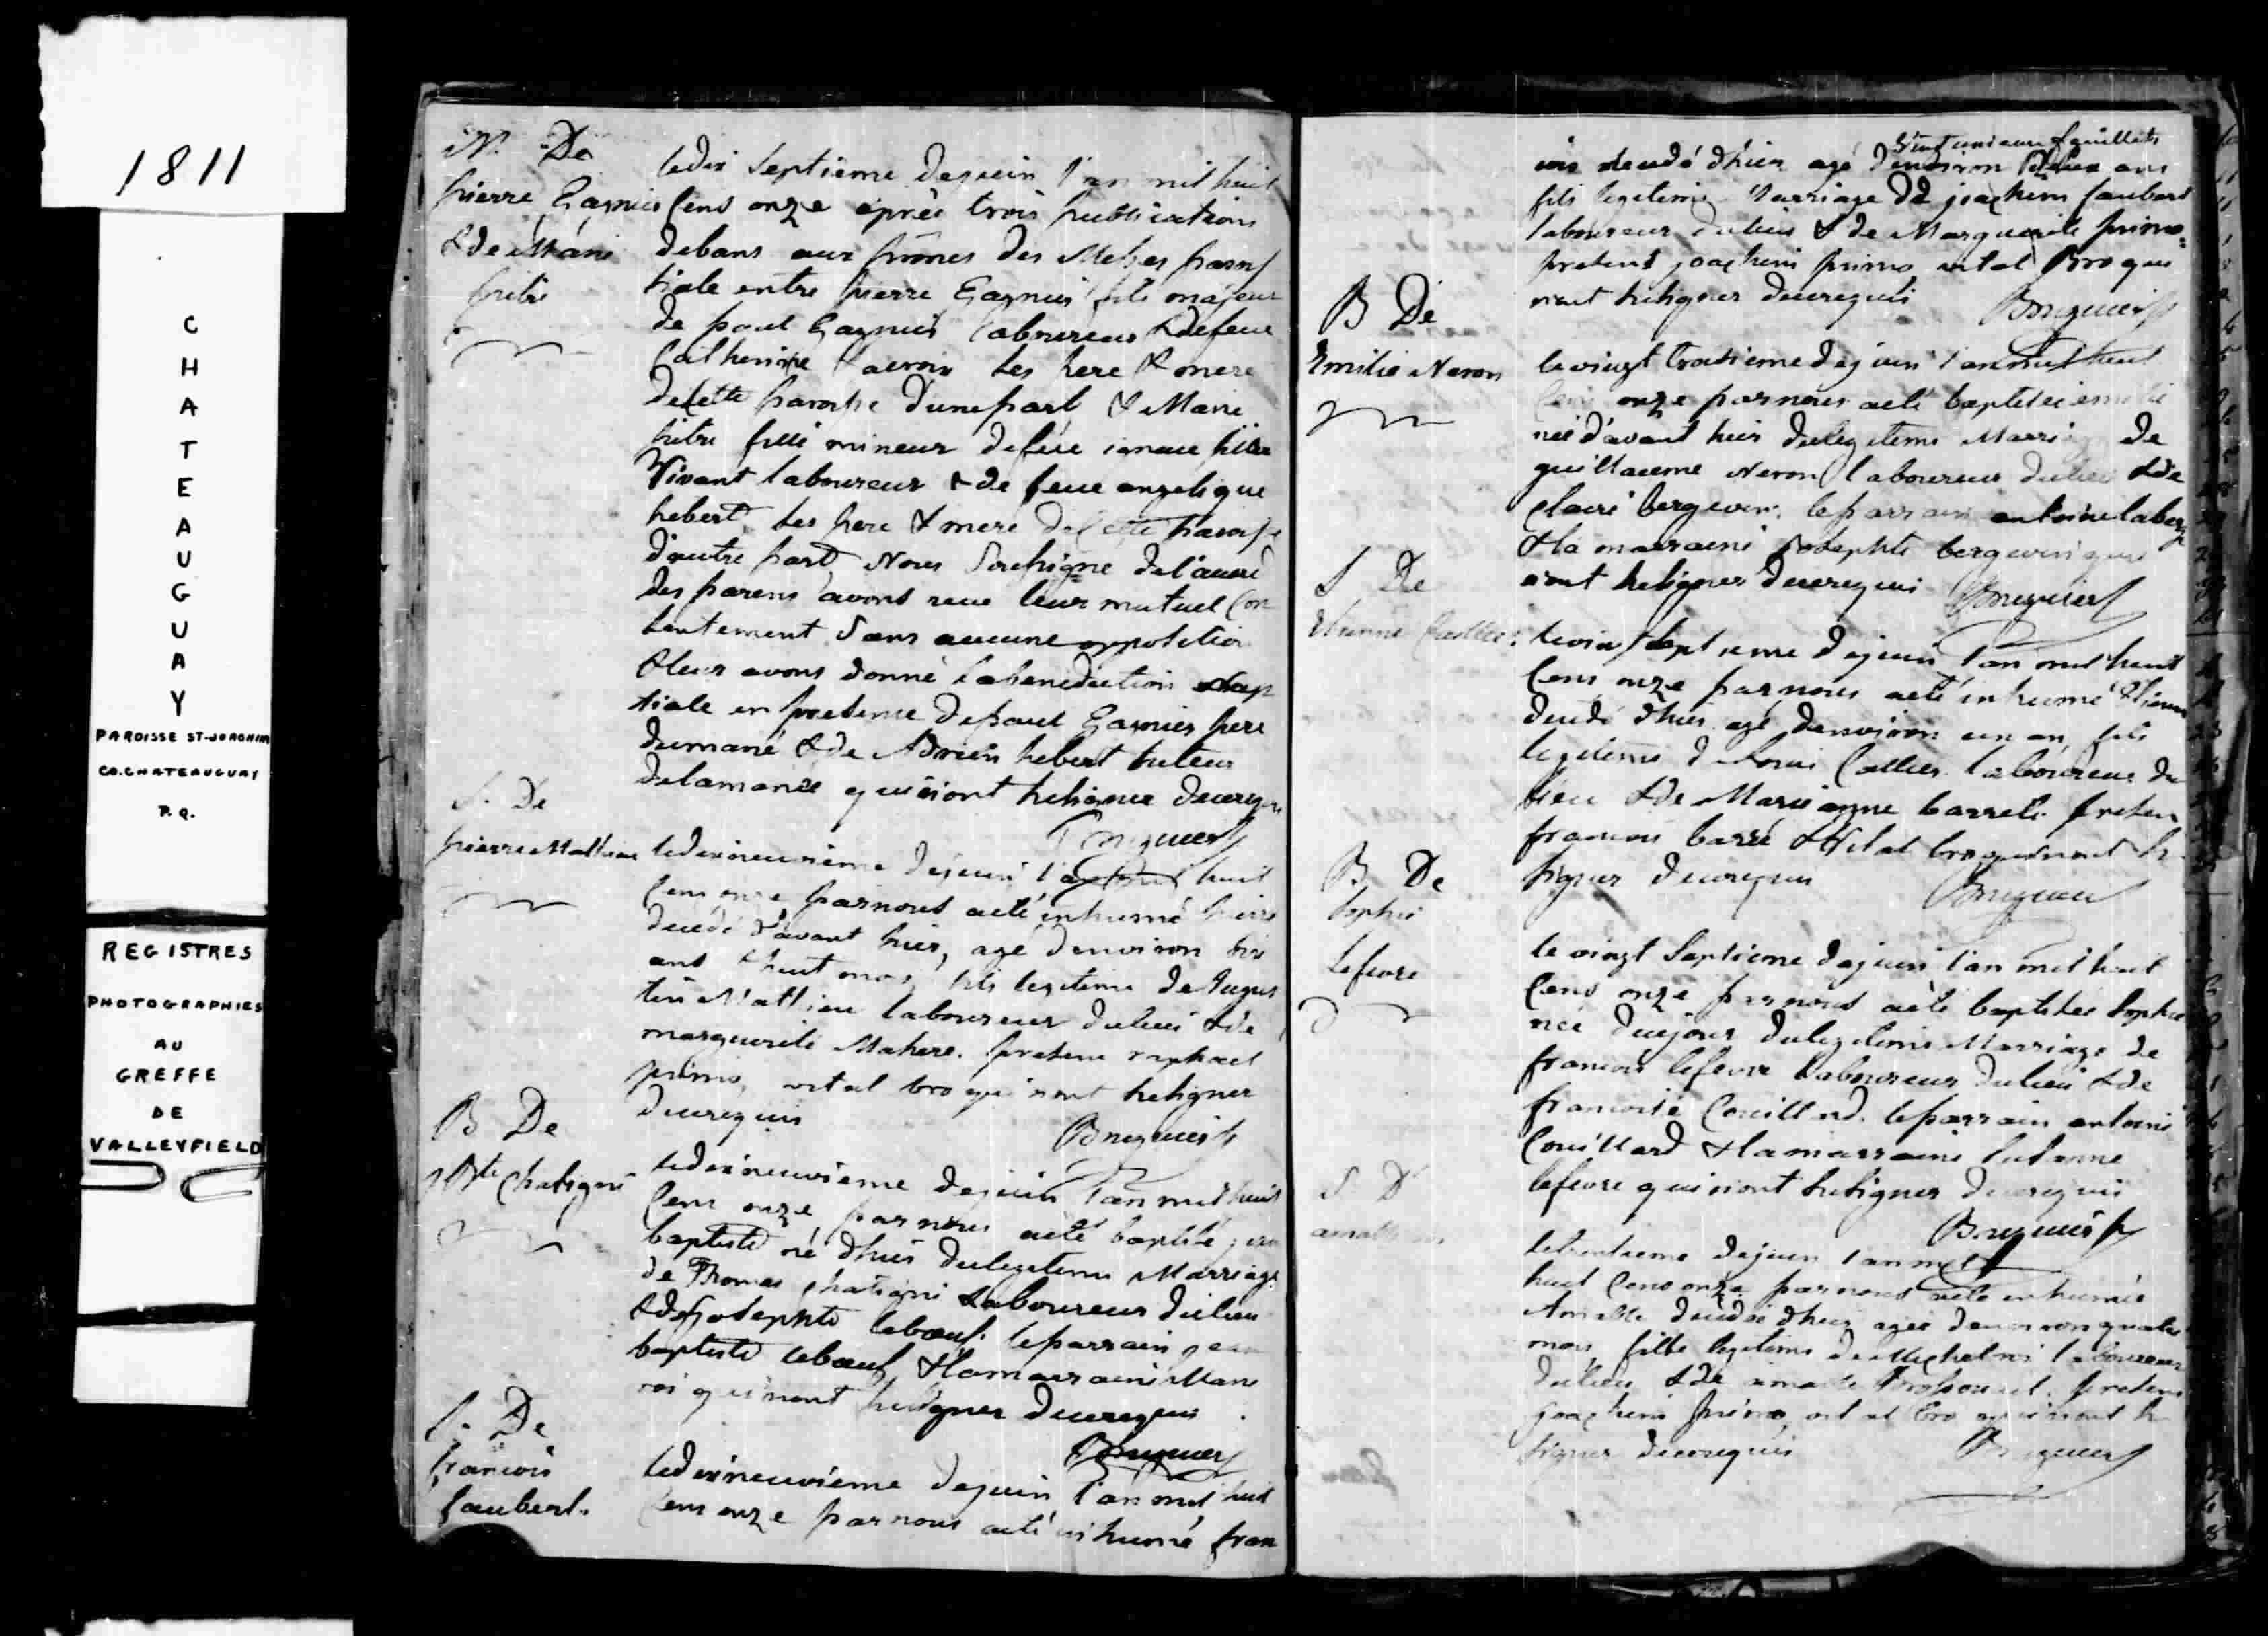 1811
C
H
A
T
E
A
U
G
U
A
Y
PAROISSE ST-JOACHIM
CO. CHATEAUGUAY
P.Q.
REGISTRES
PHOTOGRAPHIES
AU
GREFFE
DE
VALLEYFIELD
M. De
pierre Gagnier
& de Marie
pitre
le dix Septième de juin l'an mil huit
Cens onze après trois publications
de bans aux prônes des Messes parois
siale entre pierre Gagnier fils majeur
de paul Gagnier laboureur & de feue
Catherine ses pere & mere
de cette paroisse d'une part & Marie
pitre fille mineur de feu ignace pitre
Vivant laboureur & de feue angelique
hebert ses pere & mere de cette paroisse
d'autre part, Nous Soussigne de l'aveu
des parens avons recue leur mutuel Con
sentement Sans aucune opposition
& leur avons donné la benediction nup
tiale en presence de paul Gagnier pere
du marié & de Adrien hebert tuteur
de la mariée qui n'ont sçu signer de ce requis
Bruguier ptr
S. De
pierre Mathieu
le dixneuvième de juin l'an mil huit
Cens onze par nous a eté inhumé pierre
decedé d'avant hier, agé d'environ six
ans & huit mois, fils legitime de Augus
tin Mathieu laboureur du lieu & de
marguerite Mahere. presence raphael
primo, vital bro qui n'ont sçu signer
de ce requis
Bruguier ptr
B De
J Bte Chatigni
le dixneuvième de juin l'an mil huit
Cens onze par nous a eté baptisé jean
baptiste né d'hier du legitime Marriage
de Thomas chatigni Laboureur du lieu
& de Josephte lebœuf. le parrain jean
baptiste lebœuf & la marraine Marie
roi qui n'ont sçu signer de ce requis
Bruguier ptr
S. De
francois
faubert.
le dixneuvième de juin l'an mil huit
Cens onze par nous a eté inhumé fran
cois decedé d'hier agé d'environ ans
fils legitime Marriage de joachim faubert
laboureur du lieu & de Marguerite primo
presens joachim primo vital Bro qui
n'ont sçu signer de ce requis
Bruguier ptr
B De
Emilie Neron
le vingt troisieme de juin l'an mil huit
Cens onze par nous a eté baptisée emilie
née d'avant hier du legitime Marriage de
guillaume Neron laboureur du lieu & de
Claire bergevin. le parrain antoine laberge
& la marraine Josephte bergevin qui
n'ont sçu signer de ce requis
Bruguier ptr
S De
Etienne
le vingt septieme de juin l'an mil huit
Cens onze par nous a eté inhumé Etienne
decedé d'hier agé d'environ un an, fils
legitime de Louis laboureur du
lieu & de Marie anne barrete presens
francois barré & Vital bro qui n'ont sçu
signer de ce requis
Bruguier
B De
Sophie
Lefevre
le vingt Septieme de juin l'an mil huit
Cens onze par nous a eté baptisée Sophie
née du jour du legitime Marriage de
francois lefevre laboureur du lieu & de
francoise Couillard. le parrain antoine
Couillard & la marraine Susanne
lefevre qui n'ont sçu signer de ce requis
Bruguier ptr
S. De
le trentieme de juin l'an mil
huit Cens onze par nous a eté inhumée
Amable decedée d'hier agée d'environ quatre
mois fille legitime de Michel roi laboureur
du lieu & de presens
joachim primo, vital bro qui n'ont sçu
signer de ce requis
Bruguier